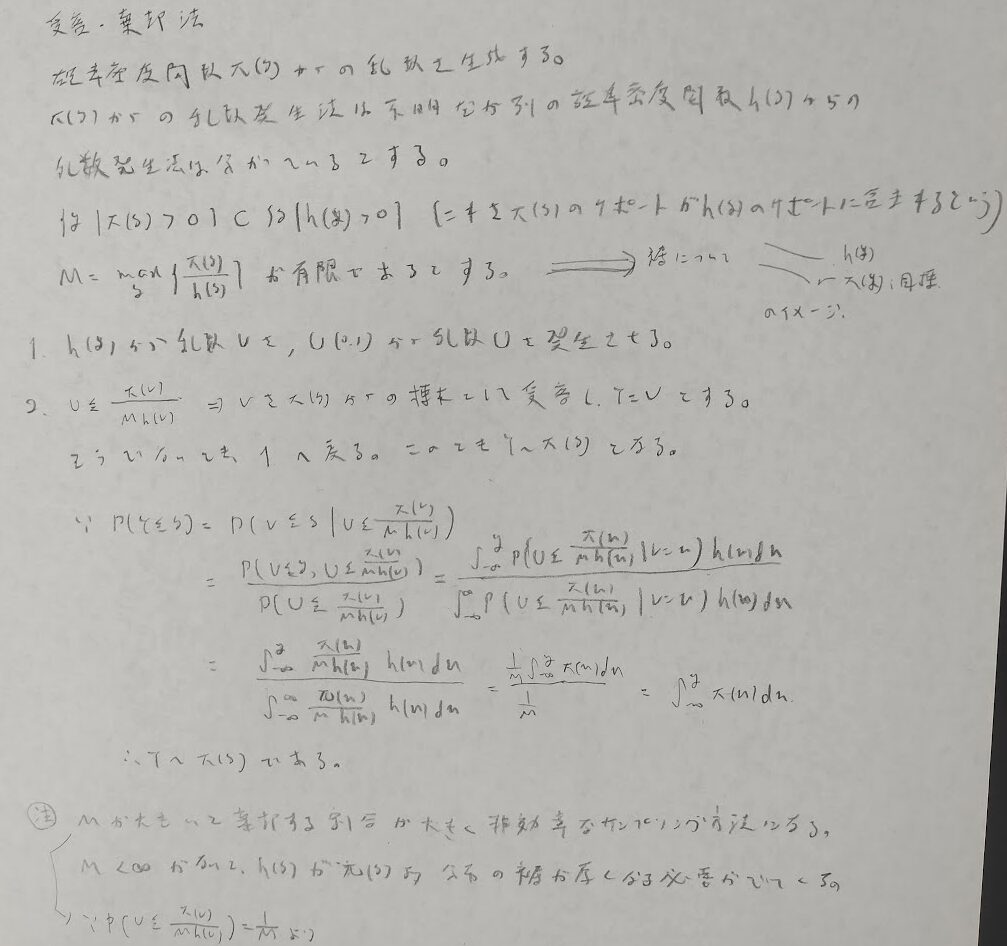 受容・棄却法
確率密度関数π(y)からの乱数を生成する。
π(y)からの乱数発生法は不明だが別の確率密度関数h(y)からの
乱数発生法は分かっているとする。
{y|π(y)>0} ⊂ {y|h(y)>0} (これをπ(y)のサポートがh(y)のサポートに含まれるという)
M = max_y {π(y)/h(y)} が有限であるとする。 ⟹ 裾について h(y)
π(y):目標
のイメージ.
1. h(y)から乱数Vを, U(0,1)から乱数Uを発生させる。
2. U≦π(V)/(Mh(V)) ⇒ Vをπ(y)からの標本として受容し、Y=Vとする。
そうでないとき、1へ戻る。このときY~π(y)となる。
∵ P(Y≦y) = P(V≦y | U≦π(V)/(Mh(V)))
= P(V≦y, U≦π(V)/(Mh(V))) / P(U≦π(V)/(Mh(V))) = ∫_{-∞}^{y} P(U≦π(u)/(Mh(u)) | V=u) h(u)du / ∫_{-∞}^{∞} P(U≦π(u)/(Mh(u)) | V=u) h(u)du
= ∫_{-∞}^{y} π(u)/(Mh(u)) h(u)du / ∫_{-∞}^{∞} π(u)/(Mh(u)) h(u)du = (1/M ∫_{-∞}^{y} π(u)du) / (1/M) = ∫_{-∞}^{y} π(u)du.
∴ Y~π(y)である。
注 Mが大きいと棄却する割合が大きく非効率なサンプリング方法になる。
M<∞がないと、h(y)がπ(y)より分布の裾が厚くなる必要がでてくるの
∵ P(U≦π(V)/(Mh(V))) = 1/M より